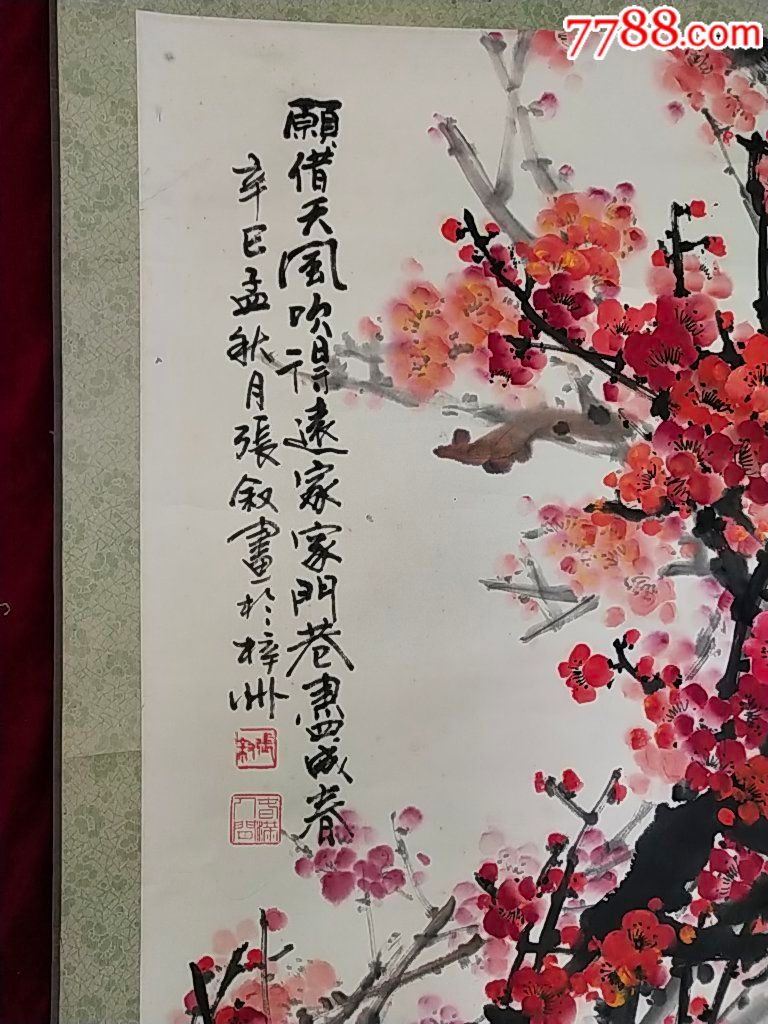 7788.com
願借天風吹得遠家家門巷盡成春
辛巳孟秋月張敘畫於梓州
張敘
春滿人間